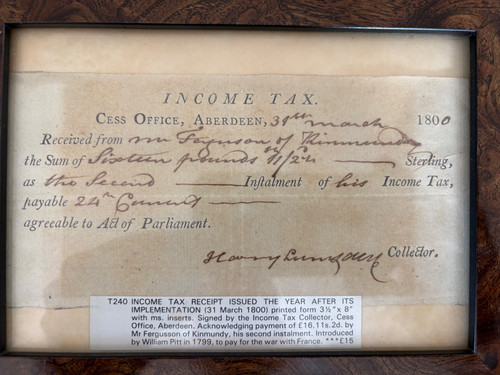 INCOME TAX.
CESS OFFICE, ABERDEEN, 31st march 1800
Received from mr Ferguson of Kinmundy
the Sum of Sixteen pounds 11/2d Sterling,
as the Second Instalment of his Income Tax,
payable 24th Current
agreeable to Act of Parliament.
Harry Lumsden Collector.
T240 INCOME TAX RECEIPT ISSUED THE YEAR AFTER ITS
IMPLEMENTATION (31 March 1800) printed form 3½"x 8"
with ms. inserts. Signed by the Income Tax Collector, Cess
Office, Aberdeen. Acknowledging payment of £16.11s.2d. by
Mr Fergusson of Kinmundy, his second instalment. Introduced
by William Pitt in 1799, to pay for the war with France. ***£15